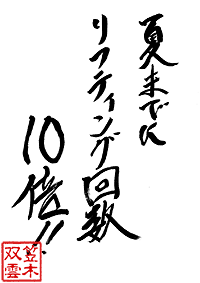 夏までに
リフティング回数
10倍!!
笠木
双雲